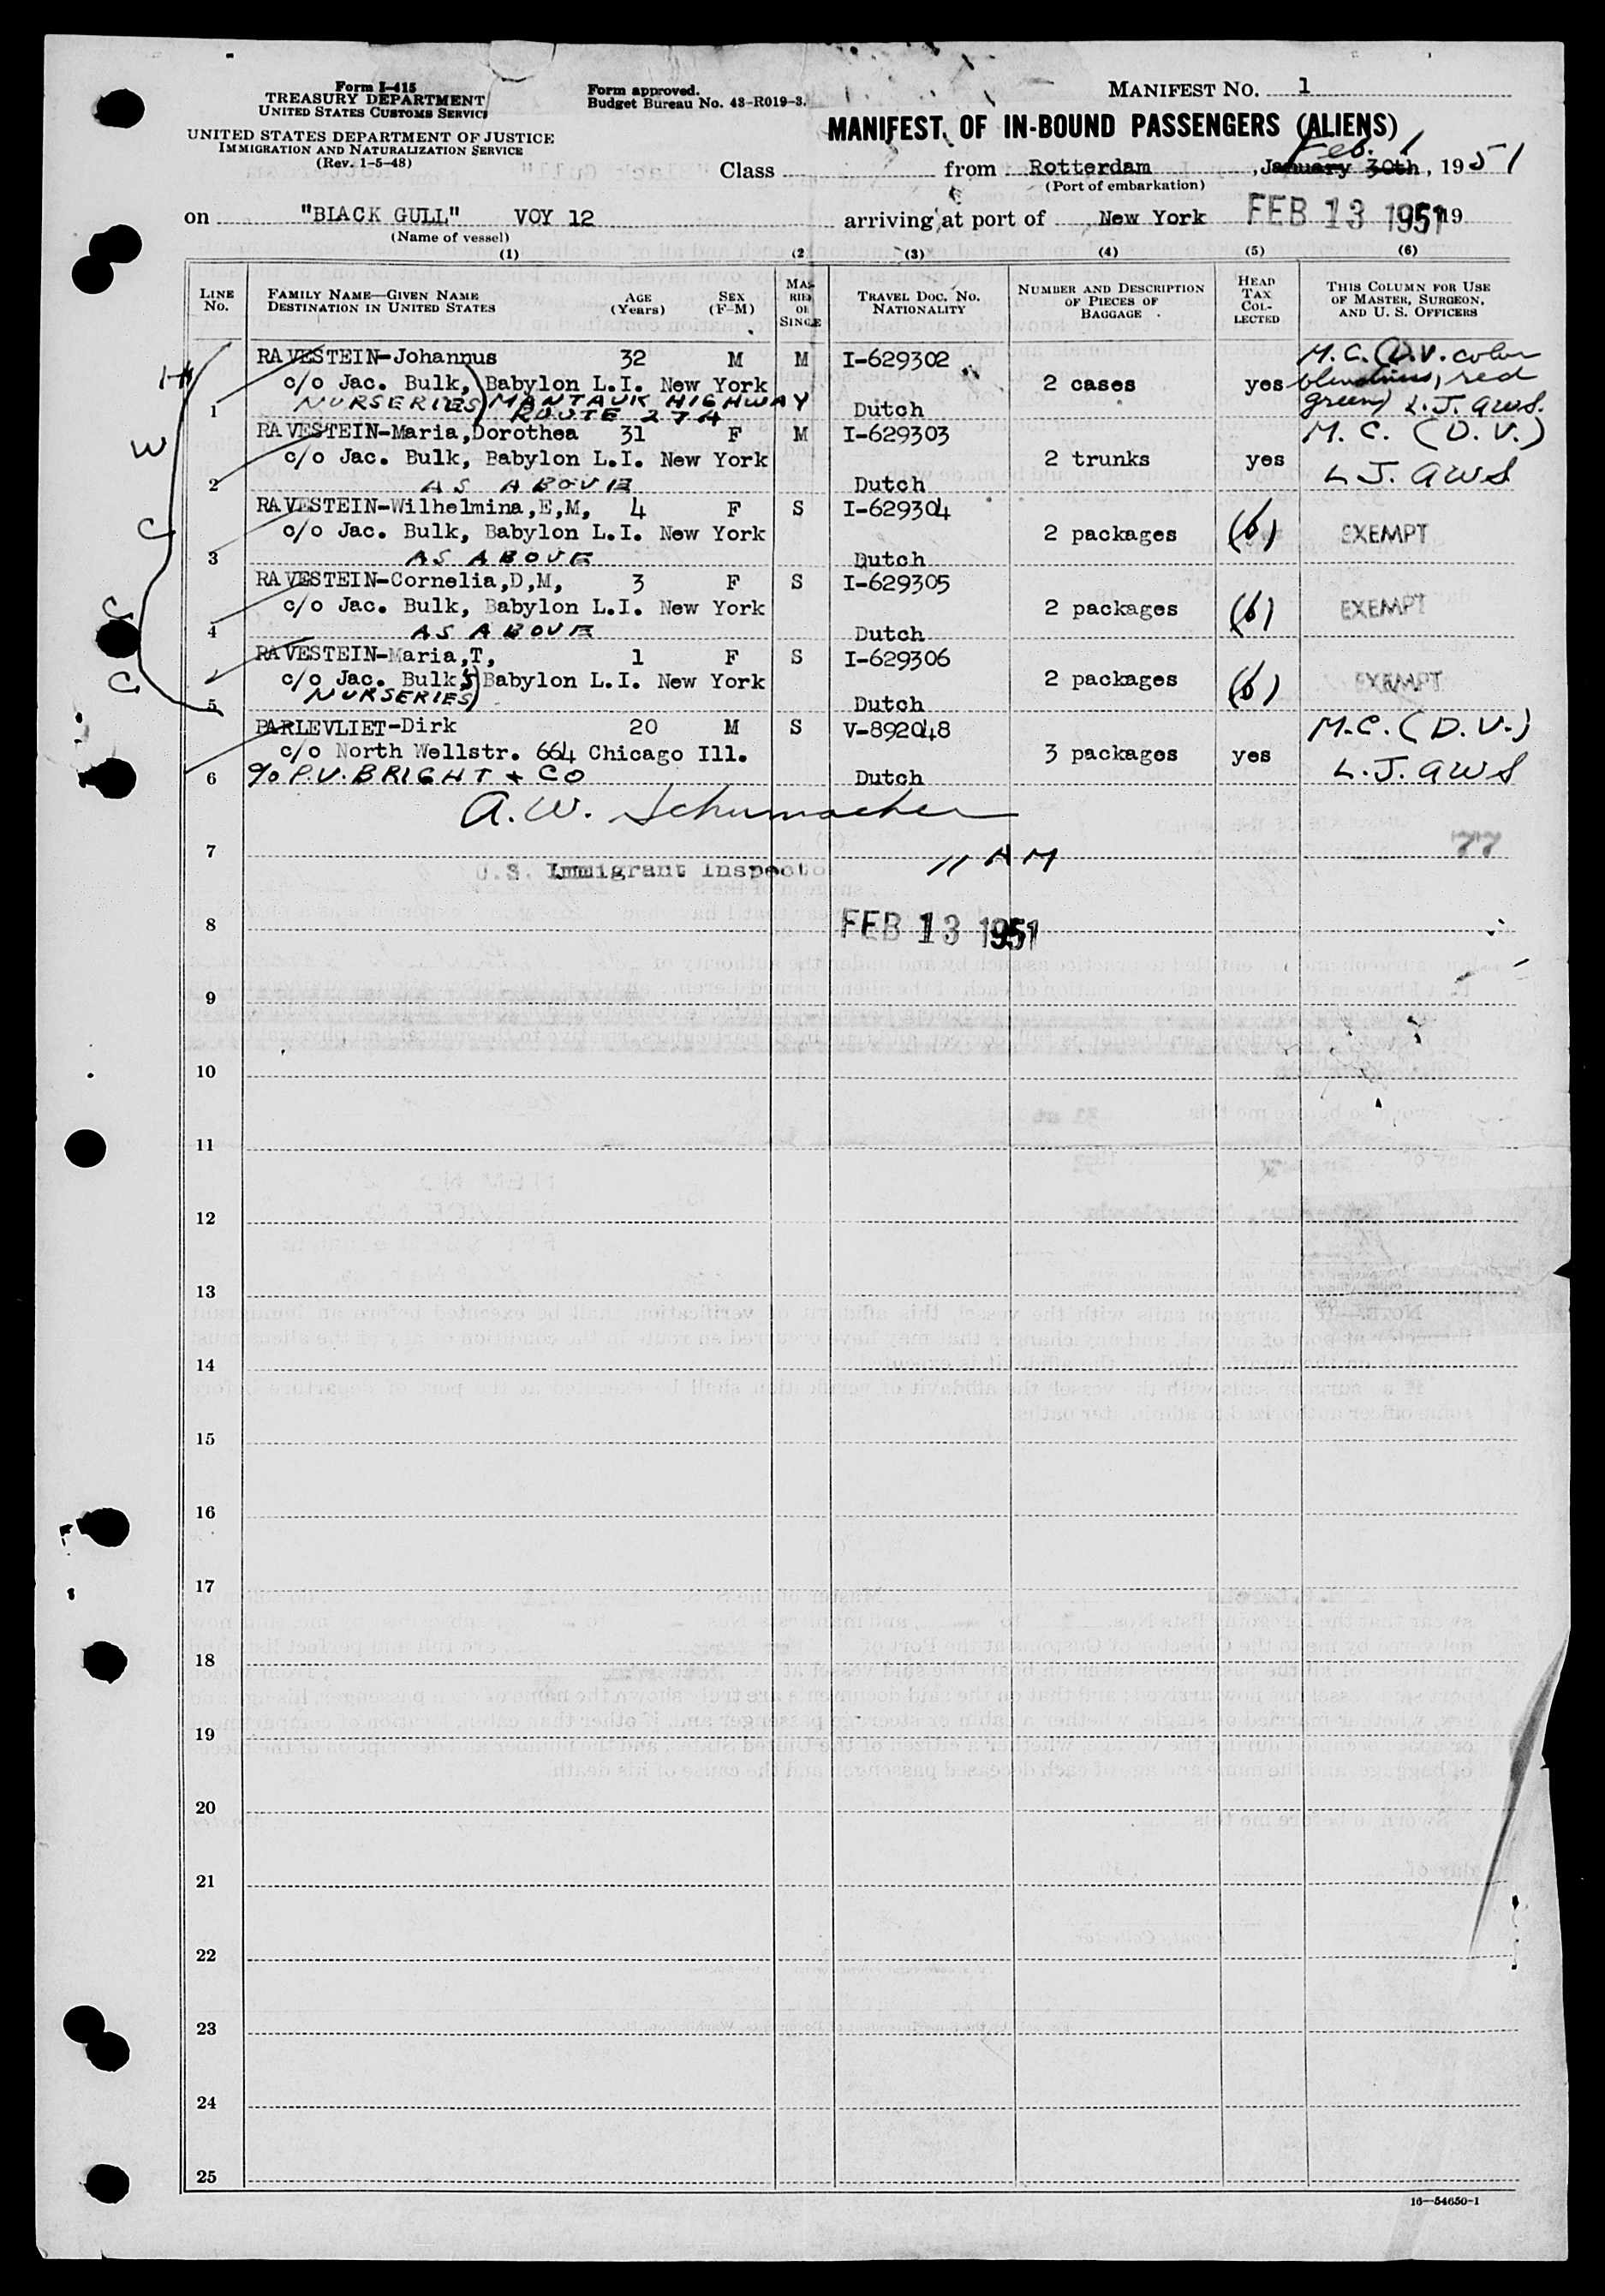 Form I-415
TREASURY DEPARTMENT
UNITED STATES CUSTOMS SERVICE
UNITED STATES DEPARTMENT OF JUSTICE
IMMIGRATION AND NATURALIZATION SERVICE
(Rev. 1-5-48)
Form approved.
Budget Bureau No. 43-R019-3.
MANIFEST NO. 1
MANIFEST OF IN-BOUND PASSENGERS (ALIENS)
Feb. 1
Class from Rotterdam, January 30th, 1951
(Port of embarkation)
on "BLACK GULL" VOY 12 arriving at port of New York FEB 13 1951 19
(Name of vessel)
(1) (2 (3) (4) (5) (6)
LINE NO. FAMILY NAME—GIVEN NAME DESTINATION IN UNITED STATES AGE (Years) SEX (F-M) MARRIED OR SINGLE TRAVEL DOC. NO. NATIONALITY NUMBER AND DESCRIPTION OF PIECES OF BAGGAGE HEAD TAX COLLECTED THIS COLUMN FOR USE OF MASTER, SURGEON, AND U. S. OFFICERS
H
RAVESTEIN-Johannus 32 M M I-629302 M.C. (D.V. color
c/o Jac. Bulk, Babylon L.I. New York 2 cases yes blindness, red
1 NURSERIES) MANTAUK HIGHWAY Dutch green) L.J. AWS.
ROUTE 27A
W
RAVESTEIN-Maria,Dorothea 31 F M I-629303 M.C. (D.V.)
c/o Jac. Bulk, Babylon L.I. New York 2 trunks yes L.J. AWS
2 AS ABOVE Dutch
C
RAVESTEIN-Wilhelmina,E,M, 4 F S I-629304
c/o Jac. Bulk, Babylon L.I. New York 2 packages (6) EXEMPT
3 AS ABOVE Dutch
C
RAVESTEIN-Cornelia,D,M, 3 F S I-629305
c/o Jac. Bulk, Babylon L.I. New York 2 packages (6) EXEMPT
4 AS ABOVE Dutch
C
RAVESTEIN-Maria,T, 1 F S I-629306
c/o Jac. Bulk'S) Babylon L.I. New York 2 packages (6) EXEMPT
5 NURSERIES) Dutch
PARLEVLIET-Dirk 20 M S V-892048 M.C. (D.V.)
c/o North Wellstr. 664 Chicago Ill. 3 packages yes L.J. AWS
6 c/o P.V. BRIGHT + CO Dutch
A.W. Schumacher
7 11 AM 77
U.S. Immigrant Inspecto
8 FEB 13 1951
9
10
11
12
13
14
15
16
17
18
19
20
21
22
23
24
25
16—54650-1